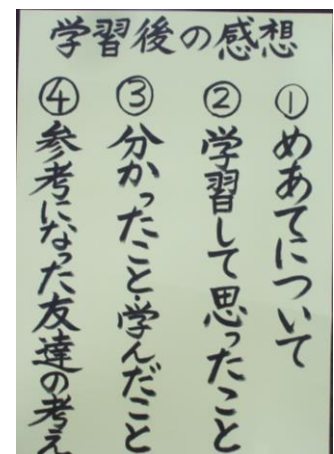 学習後の感想
①めあてについて
②学習して思ったこと
③分かったこと・学んだこと
④参考になった友達の考え